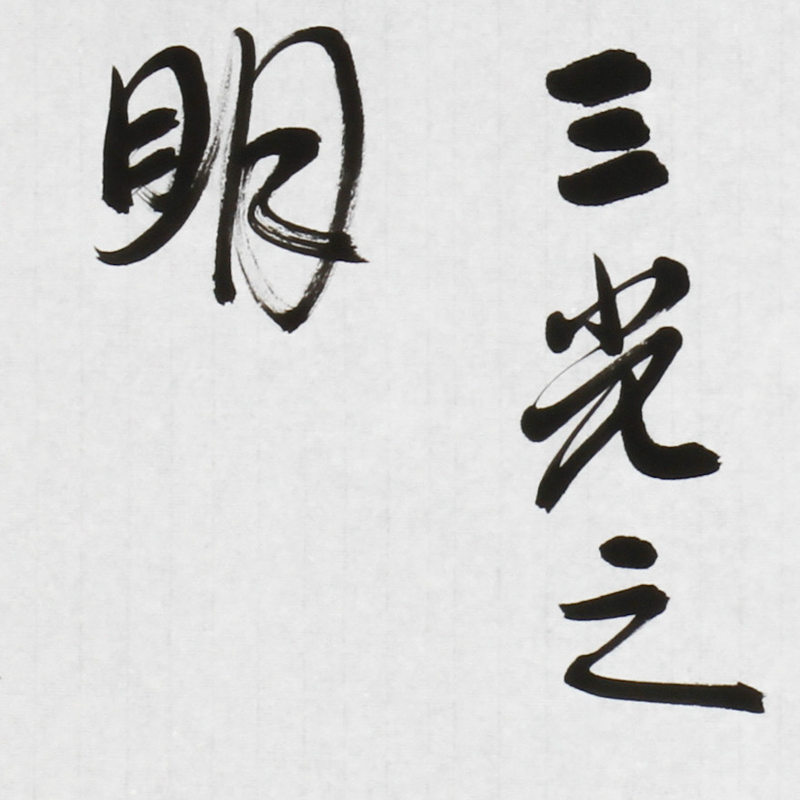 三光之
明